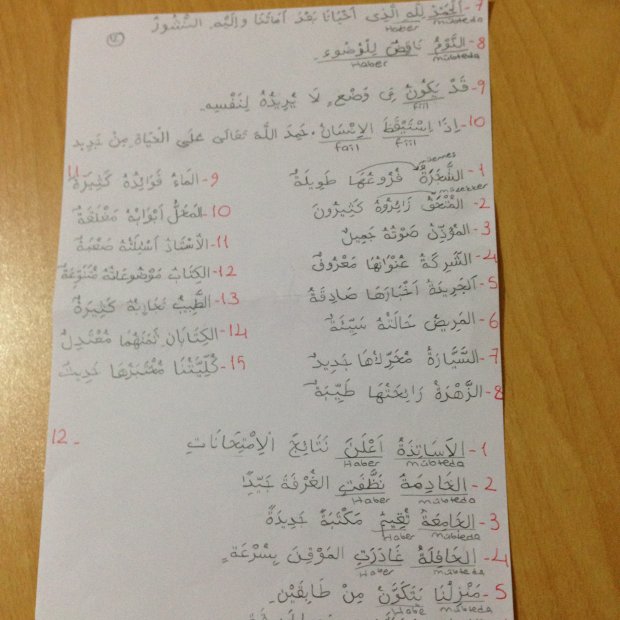 7- اَلْحَمْدُ لِلّٰهِ الَّذِي اَحْيَانَا بَعْدَ اَمَاتَنَا وَاِلَيْهِ النُّشُورُ
Haber mübteda
8- النَّوْمُ نَاقِضٌ لِلْوُضُوءِ.
Haber mübteda
9- قَدْ يَكُونُ فِى وَضْعٍ لَا يُرِيدُهُ لِنَفْسِهِ
fiil
10- اِذَا اِسْتَيْقَظَ الاِنْسَانُ حَمِدَ اللّٰهَ تَعَالَى عَلَى الْحَيَاةِ مِنْ جَدِيدٍ
fail fiil
11
1- الشَّجَرَةُ فُرُوعُهَا طَوِيلَةٌ
müennes
müzekker
2- الْمُتْحَفُ زَائِرُوهُ كَثِيرُونَ
3- المُؤَذِّنُ صَوْتُهُ جَمِيلٌ
4- الشَّرِكَةُ عُنْوَانُهَا مَعْرُوفٌ
5- الجَرِيدَةُ اَخْبَارُهَا صَادِقَةٌ
6- المَرِيضُ حَالَتُهُ سَيِّئَةٌ
7- السَّيَّارَةُ مُحَرِّكُهَا جَدِيدٌ
8- الزَّهْرَةُ رَائِحَتُهَا طَيِّبَةٌ
9- المَاءُ فَوَائِدُهُ كَثِيرَةٌ
10- المَعْمَلُ اَبْوَابُهُ مُغْلَقَةٌ
11- الْاُسْتَاذُ اَسْئِلَتُهُ صَعْبَةٌ
12- الكِتَابُ مَوْضُوعَاتُهُ مُتَنَوِّعَةٌ
13- الطَّبِيبُ تَجَارِبُهُ كَثِيرَةٌ
14- الكِتَابَانِ ثَمَنُهُمَا مُعْتَدِلٌ
15- كُلِّيَّتُنَا مُخْتَبَرُهَا حَدِيثٌ
12-
1- الاَسَاتِذَةُ اَعْلَنَ نَتَائِجَ الْاِمْتِحَانَاتِ
Haber mübteda
2- الخَادِمَةُ نَظَّفَتِ الغُرْفَةَ جَيِّدًا
Haber mübteda
3- الجَامِعَةُ تُقِيمُ مَكْتَبَةً جَدِيدَةً
Haber mübteda
4- الحَافِلَةُ غَادَرَتِ المَوْقِفَ بِسُرْعَةٍ
Haber mübteda
5- مَنْزِلُنَا يَتَكَوَّنُ مِنْ طَابِقَيْنِ.
Habe mübteda